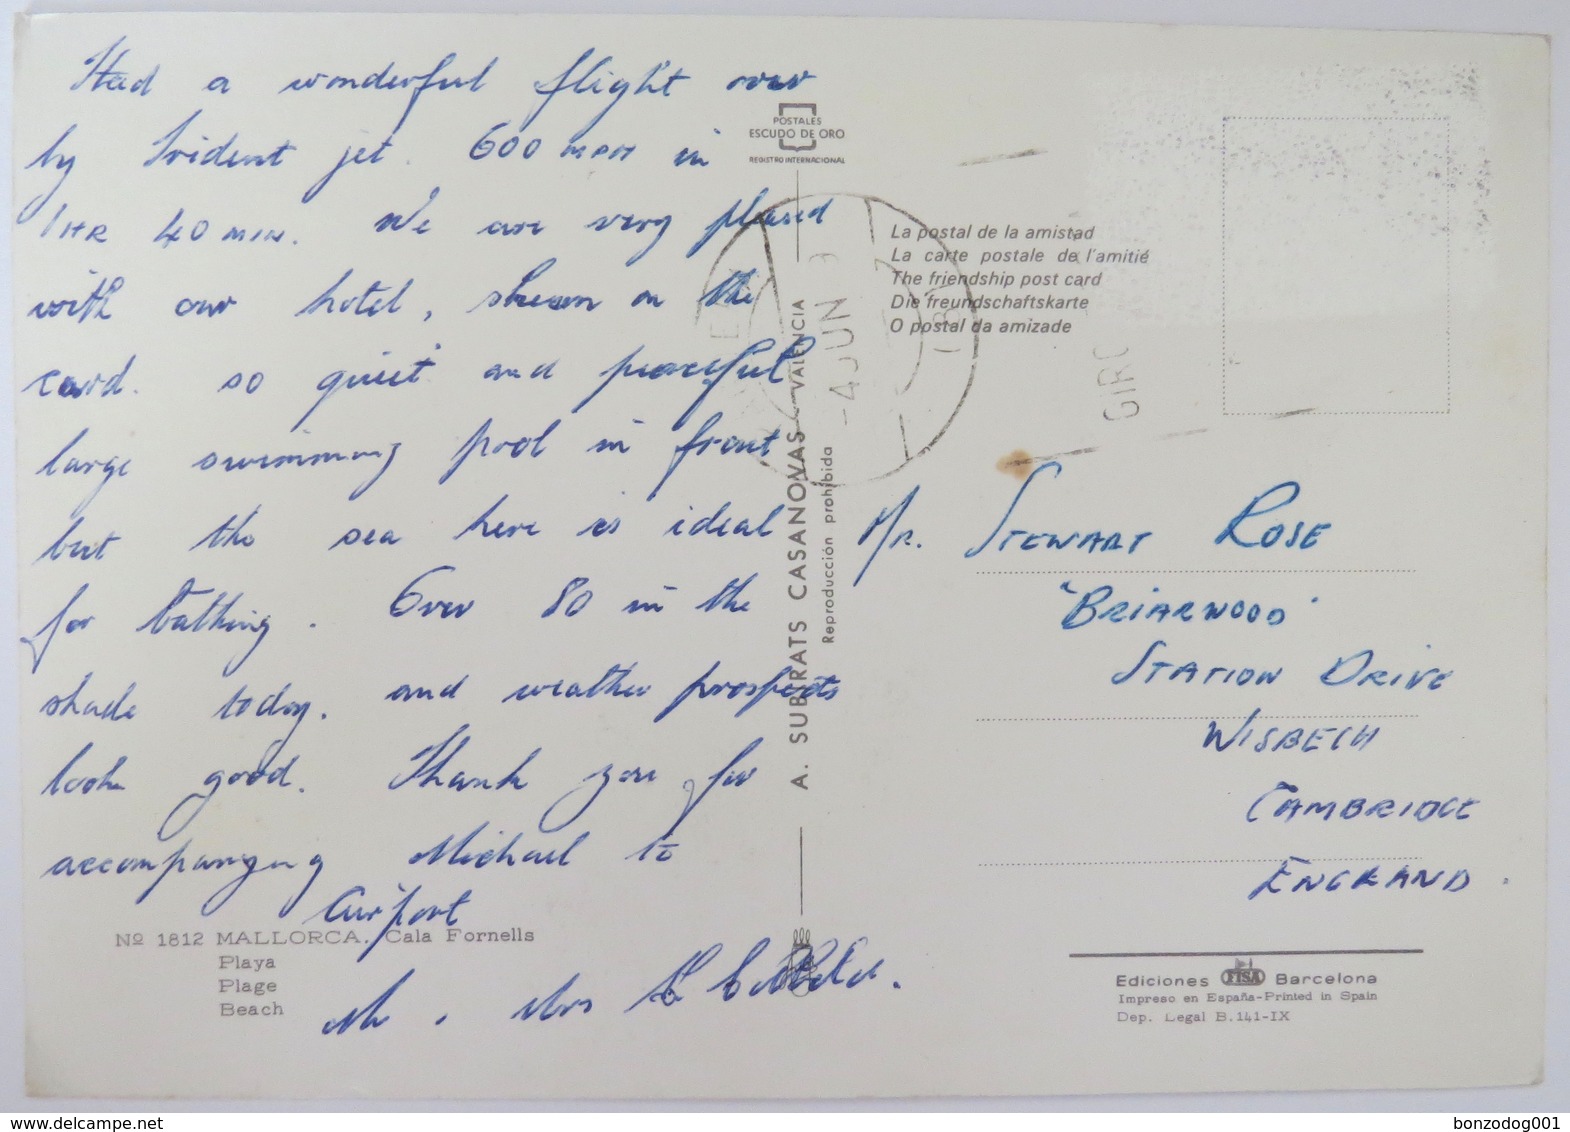 Had a wonderful flight over
by Trident jet. 600 MPH in
1 HR 40 MIN. We are very pleased
with our hotel, shewn on the
card. so quiet and peaceful
large swimming pool in front
but the sea here is ideal
for bathing. Over 80 in the
shade today. and weather prospects
look good. Thank you for
accompanying Michael to
Airport
Mr. Mrs
Nº 1812 MALLORCA. Cala Fornells
Playa
Plage
Beach
POSTALES
ESCUDO DE ORO
REGISTRO INTERNACIONAL
A. SUBIRATS CASANOVAS - VALENCIA
Reproducción prohibida
-4 JUN
GIRO
La postal de la amistad
La carte postale de l'amitié
The friendship post card
Die freundschaftskarte
O postal da amizade
Mr. STEWART ROSE
"BRIARWOOD"
STATION DRIVE
WISBECH
CAMBRIDGE
ENGLAND.
Ediciones FISA Barcelona
Impreso en España-Printed in Spain
Dep. Legal B. 141-IX
www.delcampe.net
bonzodog001